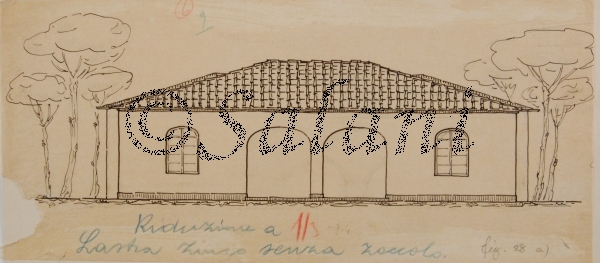 © Salani
Riduzione a 1/3
Lastra zinco senza zoccolo. (fig. 28 a)